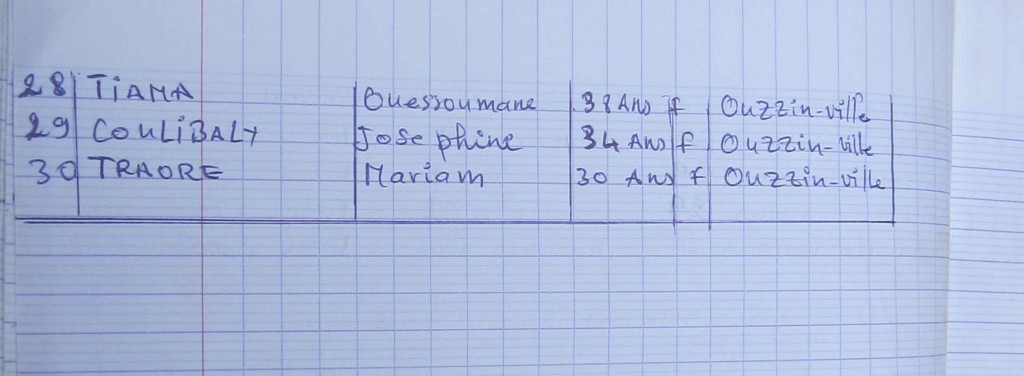 28 TIAMA Ouessoumane 38 Ans f Ouzzin-ville
29 COULIBALY Josephine 34 Ans f Ouzzin-ville
30 TRAORE Mariam 30 Ans f Ouzzin-ville